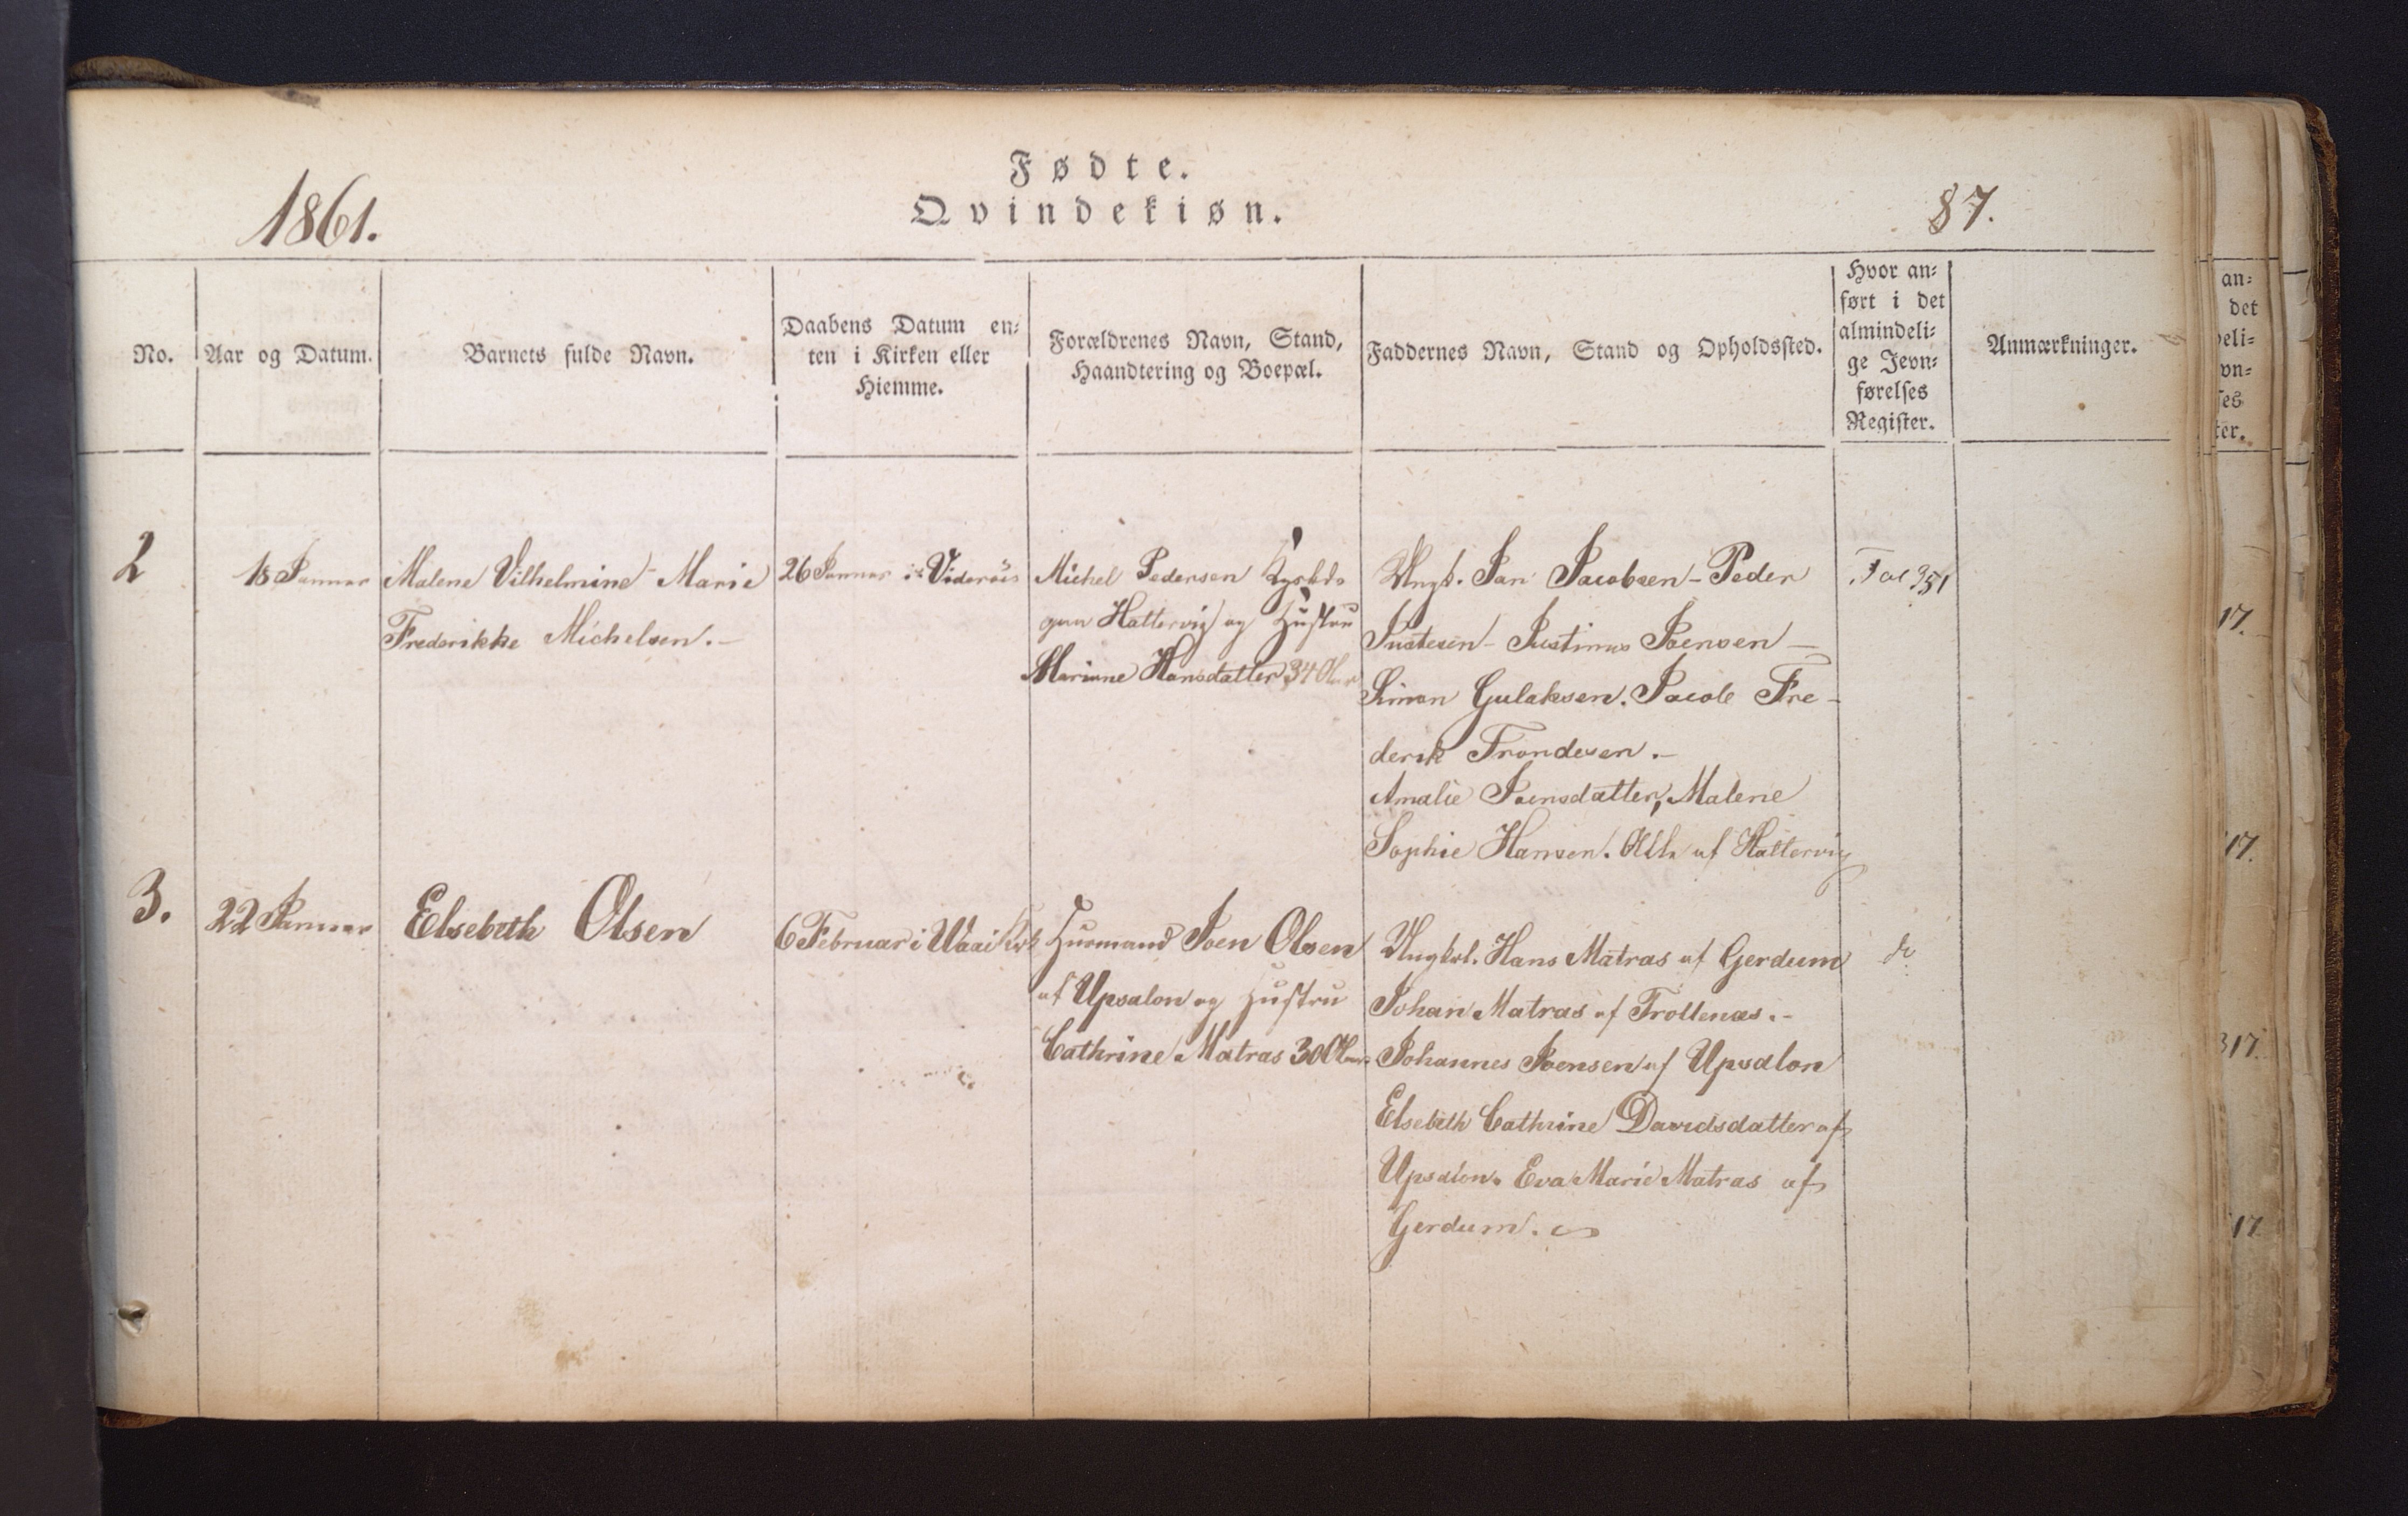 Fødte.
Qvindekiøn.
1861.
87.
No.
Aar og Datum.
Barnets fulde Navn.
Daabens Datum en-
ten i Kirken eller
Hiemme.
Forældrenes Navn, Stand,
Haandtering og Boepæl.
Faddernes Navn, Stand og Opholdssted.
Hvor an-
ført i det
almindeli-
ge Jevn-
førelses
Register.
Anmærkninger.
2
18 Januar
Malene Vilhelmine Marie
Frederikke Michelsen.-
26 Januar i Viderøis
Michel Pedersen
Hattervig og Hustru
Mariane Hansdatter 34 Aar
Ungk. Jan Jacobsen - Peder
Justesen - Justinus Joensen -
Simon Gulaksen. Jacob Fre-
derik Trondesen.-
Amalie Joensdatter, Malene
Sophie Hansen. Alle af Hattervig
Fol 351
3.
22 Januar
Elsebeth Olsen
6 Februar i Waai Kirk
Husmand Joen Olsen
af Upsalon og Hustru
Cathrine Matras 30 Aar
Ungkrl. Hans Matras af Gerdum
Johan Matras af Trollenæs.-
Johannes Joensen af Upsalon
Elsebeth Cathrine Davidsdatter af
Upsalon. Eva Marie Matras af
Gerdum.
do
an-
det
deli-
vn-
ses
ter.
17.
17.
317.
17